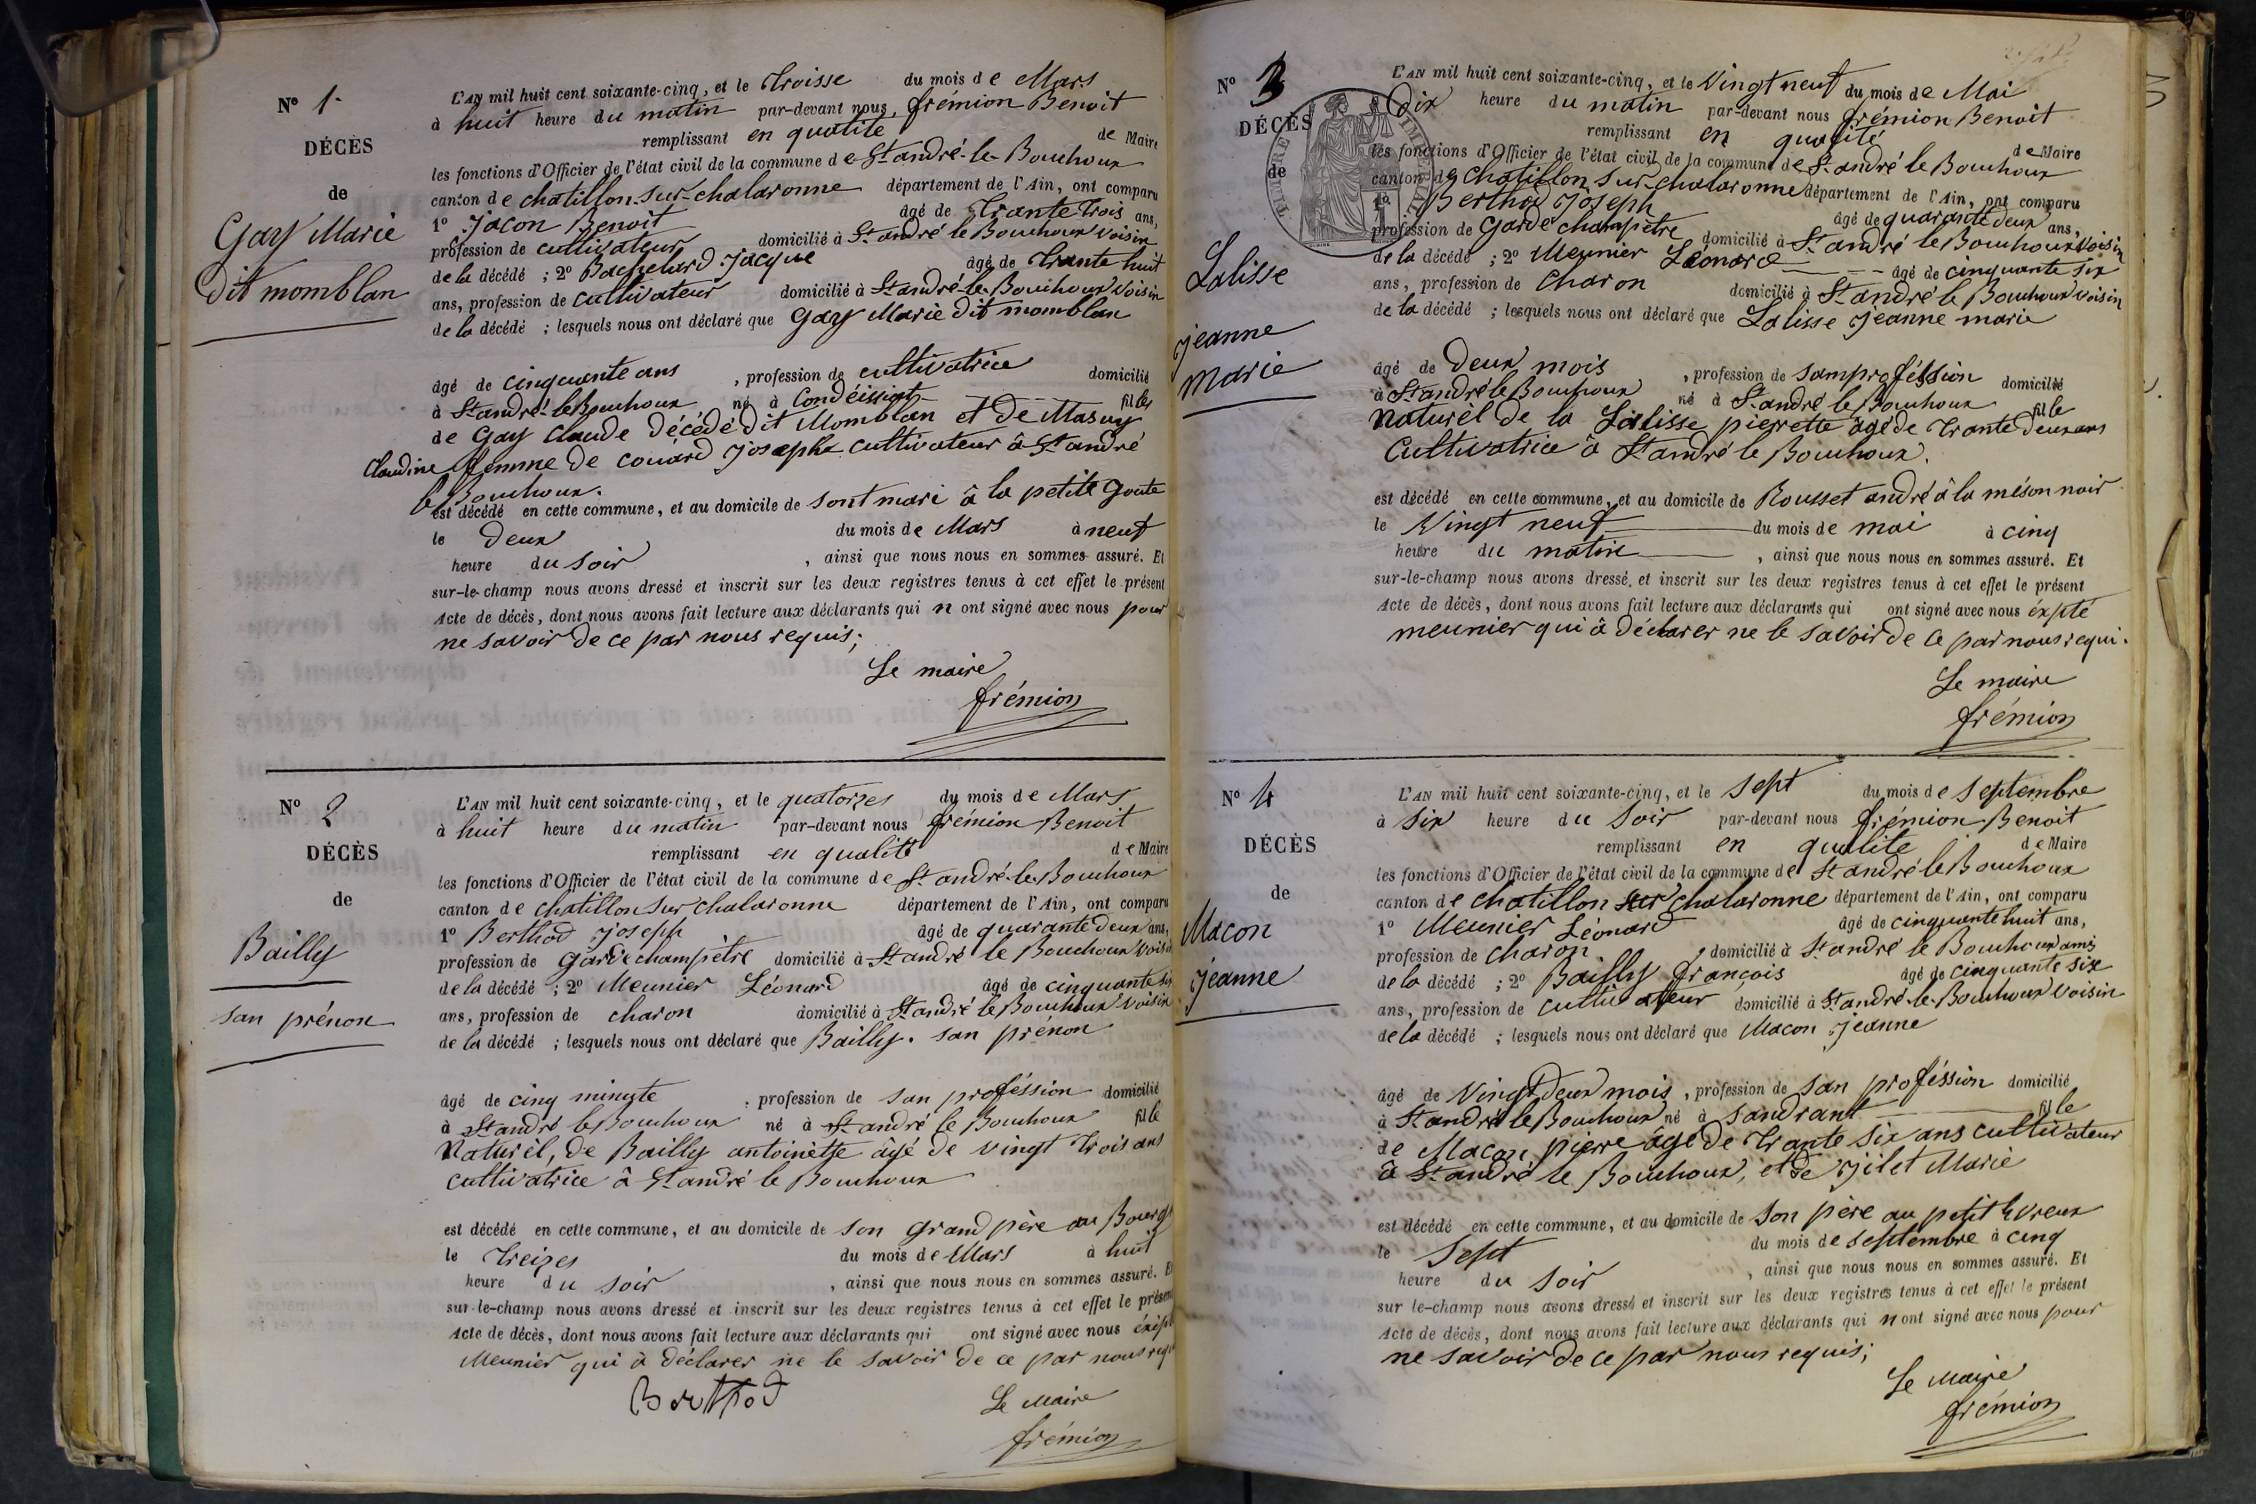 N° 1.
DÉCÈS
de
Gay Marie
dit momblan
L'AN mil huit cent soixante-cinq, et le troisse du mois de Mars
à huit heure du matin par-devant nous, frémion Benoit
remplissant en qualité de Maire
les fonctions d'Officier de l'état civil de la commune de St andré-le-Bouchoux
canton de chatillon-sur-chalaronne département de l'Ain, ont comparu
1° Jacon Benoit âgé de trante trois ans,
profession de cultivateur domicilié à St andré le Bouchoux voisin
de la décédé ; 2° Bachelard Jacque âgé de trante huit
ans, profession de cultivateur domicilié à St andré-le-Bouchoux voisin
de la décédé ; lesquels nous ont déclaré que Gay Marie dit momblan
âgé de cinquante ans , profession de cultivatrice domicilié
à St andré-le Bouchoux né à Condéissiat fille
de Gay Claude Décédé dit Momblan et de Masuy
Claudine femme de couard Josephe cultivateur à St andré
le Bouchoux.
est décédé en cette commune, et au domicile de sont mari à la petite Goute
le deux du mois de Mars à neuf
heure du soir , ainsi que nous nous en sommes assuré. Et
sur-le-champ nous avons dressé et inscrit sur les deux registres tenus à cet effet le présent
Acte de décès, dont nous avons fait lecture aux déclarants qui n ont signé avec nous pour
ne savoir de ce par nous requis;
Le maire
frémion
N° 2
DÉCÈS
de
Bailly
san prénon
L'AN mil huit cent soixante-cinq, et le quatorzes du mois de Mars
à huit heure du matin par-devant nous frémion Benoit
remplissant en qualité de Maire
les fonctions d'Officier de l'état civil de la commune de St andré-le-Bouchoux
canton de chatillon sur chalaronne département de l'Ain, ont comparu
1° Berthod Joseph âgé de quarante deux ans,
profession de garde champêtre domicilié à St andré le Bouchoux voisin
de la décédé ; 2° Meunier Léonard âgé de cinquante six
ans, profession de charon domicilié à St andré le Bouchoux voisin
de la décédé ; lesquels nous ont déclaré que Bailly. san prénon
âgé de cinq minute , profession de san proféssion domicilié
à St andré le Bouchoux né à St andré le Bouchoux fille
Naturèl, de Bailly antoinette âgé de vingt trois ans
cultivatrice à St andré le Bouchoux
est décédé en cette commune, et au domicile de son grand père au Bourg
le treizes du mois de Mars à huit
heure du soir , ainsi que nous nous en sommes assuré. Et
sur-le-champ nous avons dressé et inscrit sur les deux registres tenus à cet effet le présent
Acte de décès, dont nous avons fait lecture aux déclarants qui ont signé avec nous
Meunier qui à déclarer ne le savoir de ce par nous
Berthod
Le Maire
frémion
N° 3
DÉCÈS
de
Lalisse
Jeanne
marie
TIMBRE IMPÉRIAL
L'AN mil huit cent soixante-cinq, et le Vingt neuf du mois de Mai
Dix heure du matin par-devant nous frémion Benoit
remplissant en qualité de Maire
les fonctions d'Officier de l'état civil de la commune de St andré le Bouchoux
canton de chatillon sur-chalaronne département de l'Ain, ont comparu
1° Berthod Joseph âgé de quarante deux ans,
profession de garde champêtre domicilié à St andré le Bouchoux voisin
de la décédé ; 2° Meunier Léonard âgé de cinquante six
ans, profession de charon domicilié à St andré le Bouchoux voisin
de la décédé ; lesquels nous ont déclaré que Lalisse Jeanne marie
âgé de Deux mois , profession de samproféssion domicilié
à St andré le Bouchoux né à St andré le Bouchoux fille
Naturèl de la Lalisse pierrette âgé de trante deux ans
Cultivatrice à St andré le Bouchoux.
est décédé en cette commune, et au domicile de Rousset andré à la méson noir
le Vingt neuf du mois de mai à cinq
heure du matin , ainsi que nous nous en sommes assuré. Et
sur-le-champ nous avons dressé et inscrit sur les deux registres tenus à cet effet le présent
Acte de décès, dont nous avons fait lecture aux déclarants qui ont signé avec nous éxpté
meunier qui à déclarer ne le savoir de ce par nous requi.
Le maire
frémion
N° 4
DÉCÈS
de
Macon
Jeanne
L'AN mil huit cent soixante-cinq, et le sept du mois de septembre
à six heure du soir par-devant nous frémion Benoit
remplissant en qualite de Maire
les fonctions d'Officier de l'état civil de la commune de St andré le Bouchoux
canton de chatillon sur chalaronne département de l'Ain, ont comparu
1° Meunier Léonard âgé de cinquante huit ans,
profession de charon domicilié à St andré le Bouchoux amis
de la décédé ; 2° Bailly françois âgé de cinquante six
ans, profession de cultivateur domicilié à St andré-le-Bouchoux voisin
de la décédé ; lesquels nous ont déclaré que Macon Jeanne
âgé de Vingt Deux mois , profession de san proféssion domicilié
à St andré le Bouchoux né à Sandrant fille
de Macon pierre âgé de trante six ans cultivateur
à St andré le Bouchoux, et de Jilet Marie
est décédé en cette commune, et au domicile de son père au petit
le sept du mois de septembre à cinq
heure du soir , ainsi que nous nous en sommes assuré. Et
sur le-champ nous avons dressé et inscrit sur les deux registres tenus à cet effet le présent
Acte de décès, dont nous avons fait lecture aux déclarants qui n ont signé avec nous pour
ne savoir de ce par nous requis;
Le Maire
frémion